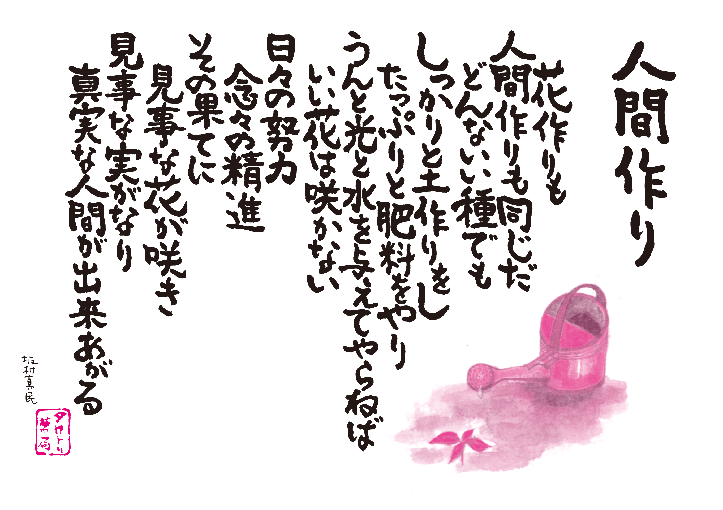 人間作り
花作りも
人間作りも同じだ
どんないい種でも
しっかりと土作りをし
たっぷりと肥料をやり
うんと光と水を与えてやらねば
いい花は咲かない
日々の努力
念々の精進
その果てに
見事な花が咲き
見事な実がなり
真実な人間が出来あがる
坂村真民